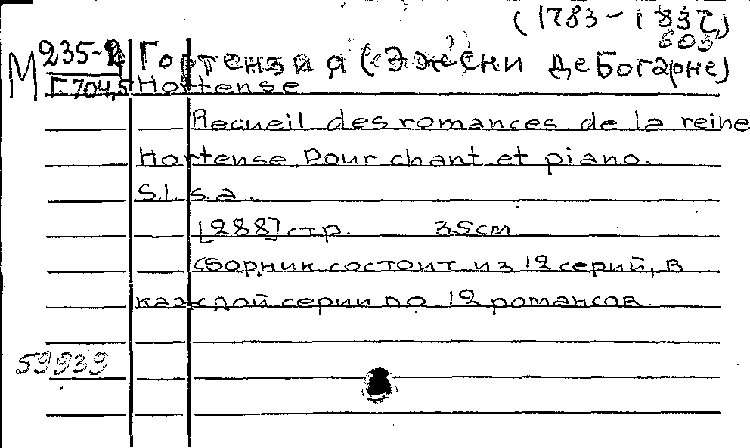 (1783-1837)
М 235-2 Гортензия (Эжени де Богарне)
Г.704,5 Hortense
Recueil des romances de la reine
Hortense pour chant et piano.
S.l. s.a.
[288] стр. 35cm
Сборник состоит из 12 серий, в
каждой серии по 12 романсов
59939